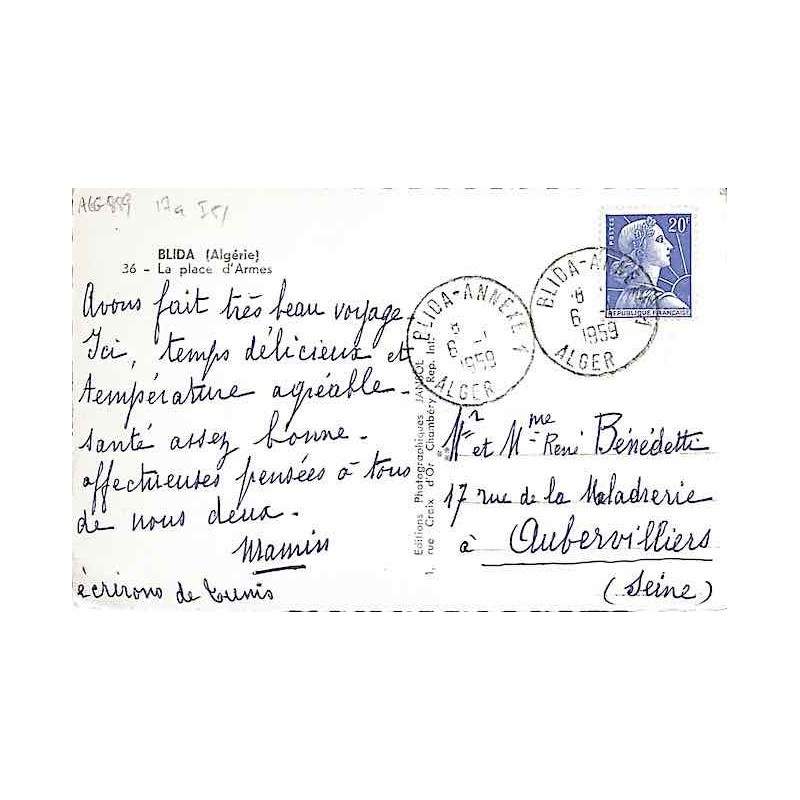 ALG-899 17a
BLIDA (Algérie)
36 - La place d'Armes
Avons fait très beau voyage.
Ici, temps délicieux et
température agréable.
santé assez bonne.
affectueuses pensées à tous
de nous deux.
Mamin
écrirons de Tunis
Editions Photographiques JANSOL
1, rue Croix d'Or Chambéry Rep. Int.
BLIDA-ANNEXE 1
6 -1
1959
ALGER
BLIDA-ANNEXE 1
6 -1
1959
ALGER
POSTES
20F
REPUBLIQUE FRANÇAISE
Mr et Mme René Bénédetti
17 rue de la Maladrerie
à Aubervilliers
(Seine)